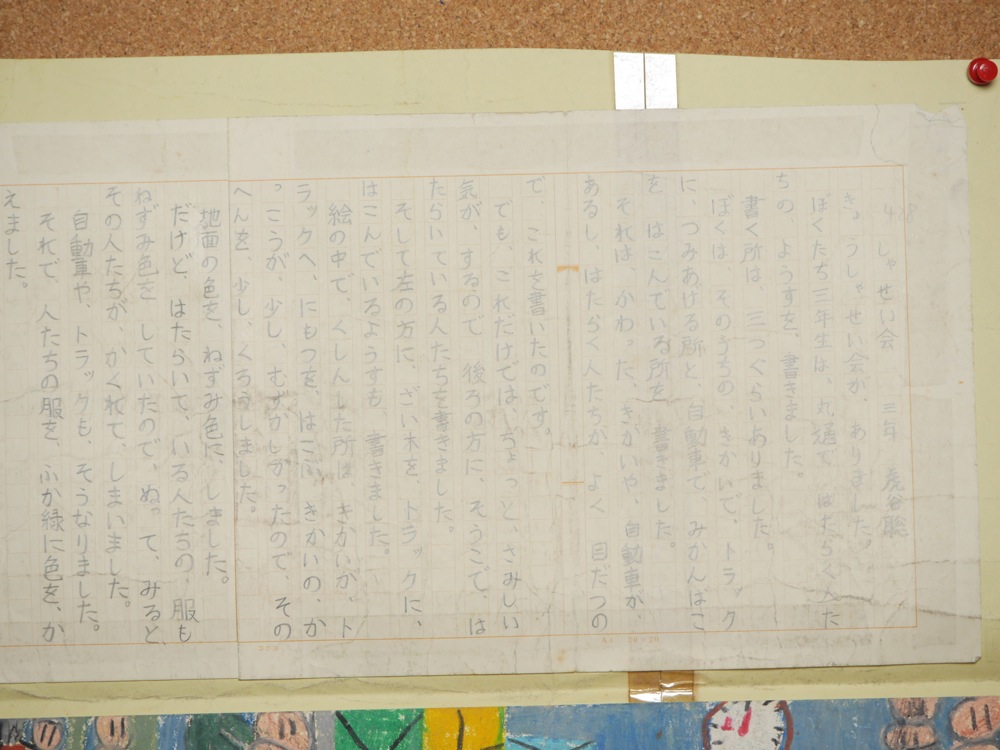 しゃせい会 三年 谷聡
きょうしゃせい会が、ありました。
ぼくたち三年生は、丸通で、はたらく人た
ちの、ようすを、書きました。
書く所は、三つぐらいありました。
ぼくは そのうちの、きかいで、トラック
に、つみあげる所と、自動車で、みかんばこ
を はこんでいる所を 書きました。
それは、かわった、きかいや、自動車が、
あるし、はたらく人たちが、よく 目だつの
で、これを書いたのです。
でも、これだけでは、ちょっと、さみしい
気が、するので 後ろの方に、そうこで、は
たらいている人たちを書きました。
そして左の方に、ざい木を、トラックに、
はこんでいるようすも、書きました。
絵の中で、くしんした所は、きかいが、ト
ラックへ、にもつを、はこぶ、きかいの、か
っこうが、少し、むずかしかったので、その
へんを、少し、くろうしました。
地面の色を、ねずみ色に、しました。
だけど、はたらいて、いる人たちの、服も
ねずみ色を していたので、ぬって、みると、
その人たちが、かくれて、しまいました。
自動車や、トラックも、そうなりました。
それで、人たちの服を、ふか緑に色を、か
えました。